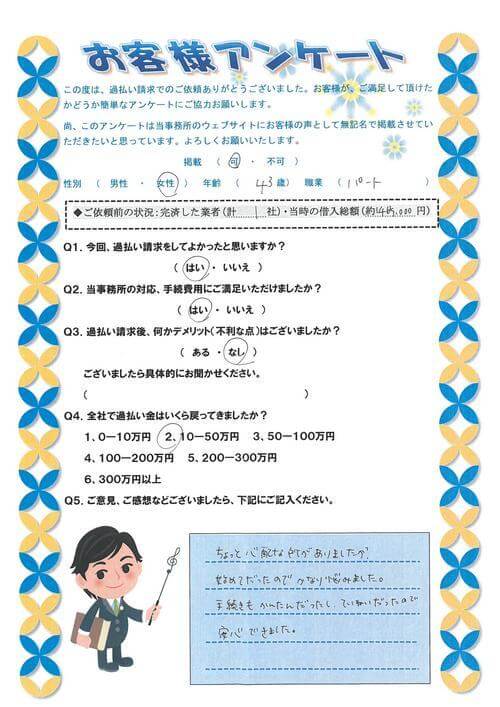 お客様アンケート
この度は、過払い請求でのご依頼ありがとうございました。お客様が、ご満足して頂けた
かどうか簡単なアンケートにご協力お願いします。
尚、このアンケートは当事務所のウェブサイトにお客様の声として無記名で掲載させてい
ただきたいと思っています。よろしくお願いいたします。
掲載 ( 可 ・ 不可 )
性別 ( 男性 ・ 女性 ) 年齢 ( 43 歳) 職業 ( パート )
◆ご依頼前の状況:完済した業者(計 1 社)・当時の借入総額(約 円)
Q1. 今回、過払い請求をしてよかったと思いますか?
( はい ・ いいえ )
Q2. 当事務所の対応、手続費用にご満足いただけましたか?
( はい ・ いいえ )
Q3. 過払い請求後、何かデメリット(不利な点)はございましたか?
( ある ・ なし )
ございましたら具体的にお聞かせください。
( )
Q4. 全社で過払い金はいくら戻ってきましたか?
1、0ー10万円 2、10ー50万円 3、50ー100万円
4、100ー200万円 5、200ー300万円
6、300万円以上
Q5. ご意見、ご感想などございましたら、下記にご記入ください。
ちょっと心配な所がありましたが
始めてだったのでかなり悩みました。
手続きもかんたんだったし、ていねいだったので
安心できました。